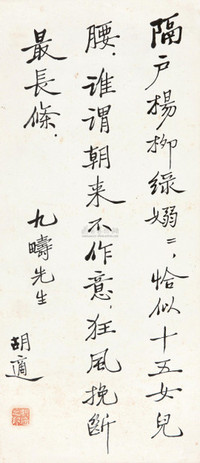 隔户楊柳綠嫋〻，恰似十五女兒
腰．誰謂朝来不作意，狂風挽断
最長條．
九疇先生
胡適